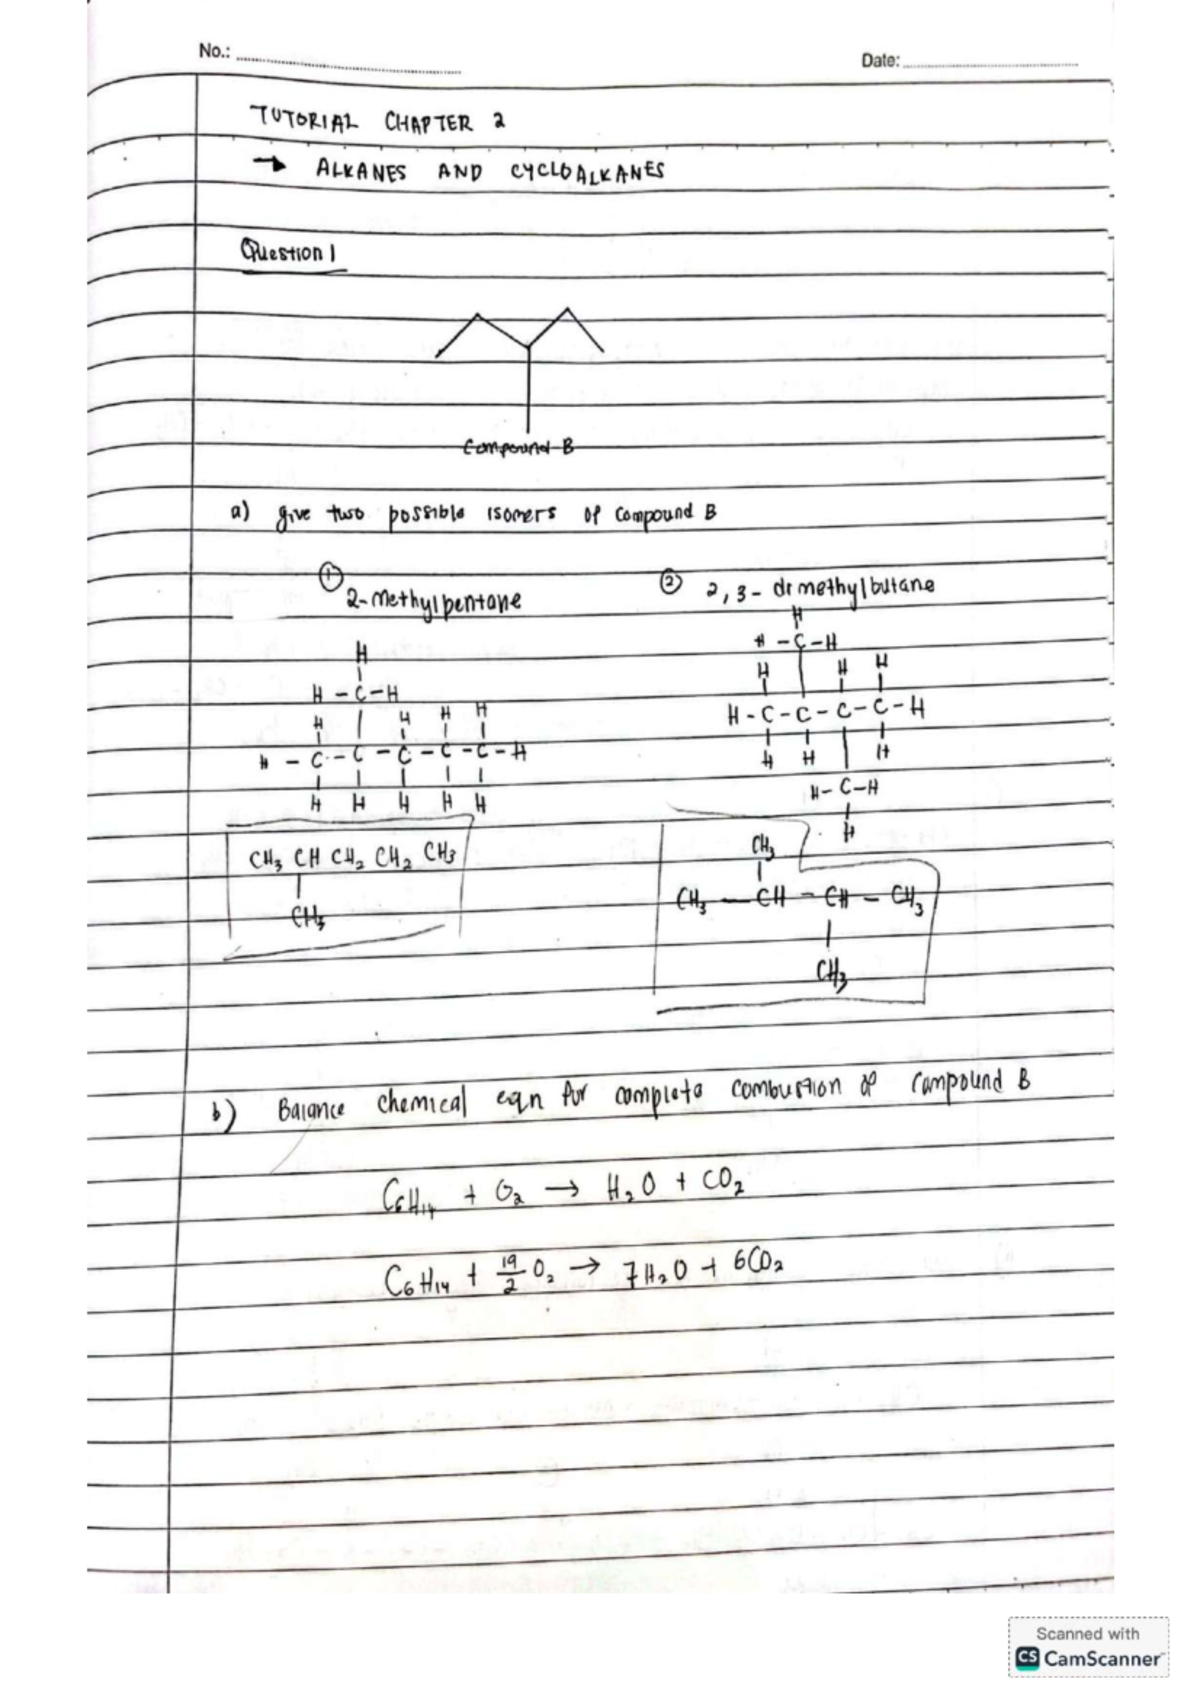 No.: Date:
TUTORIAL CHAPTER 2
→ ALKANES AND CYCLOALKANES
Question 1
Compound B
a) give two possible isomers of compound B
① 2-methylpentane
② 2,3-dimethylbutane
H
H
H-C-H
H-C-H
H H H
H H H H
H-C-C-C-C-H
H-C-C-C-C-C-H
H H H
H H H H H
H-C-H
H
CH₃ CH CH₂ CH₂ CH₃
CH₃
CH₃
CH₃-CH-CH-CH₃
CH₃
b) Balance chemical eqn for complete combustion of compound B
C₆H₁₄ + O₂ → H₂O + CO₂
C₆H₁₄ + 19/2 O₂ → 7H₂O + 6CO₂
Scanned with
CS CamScanner